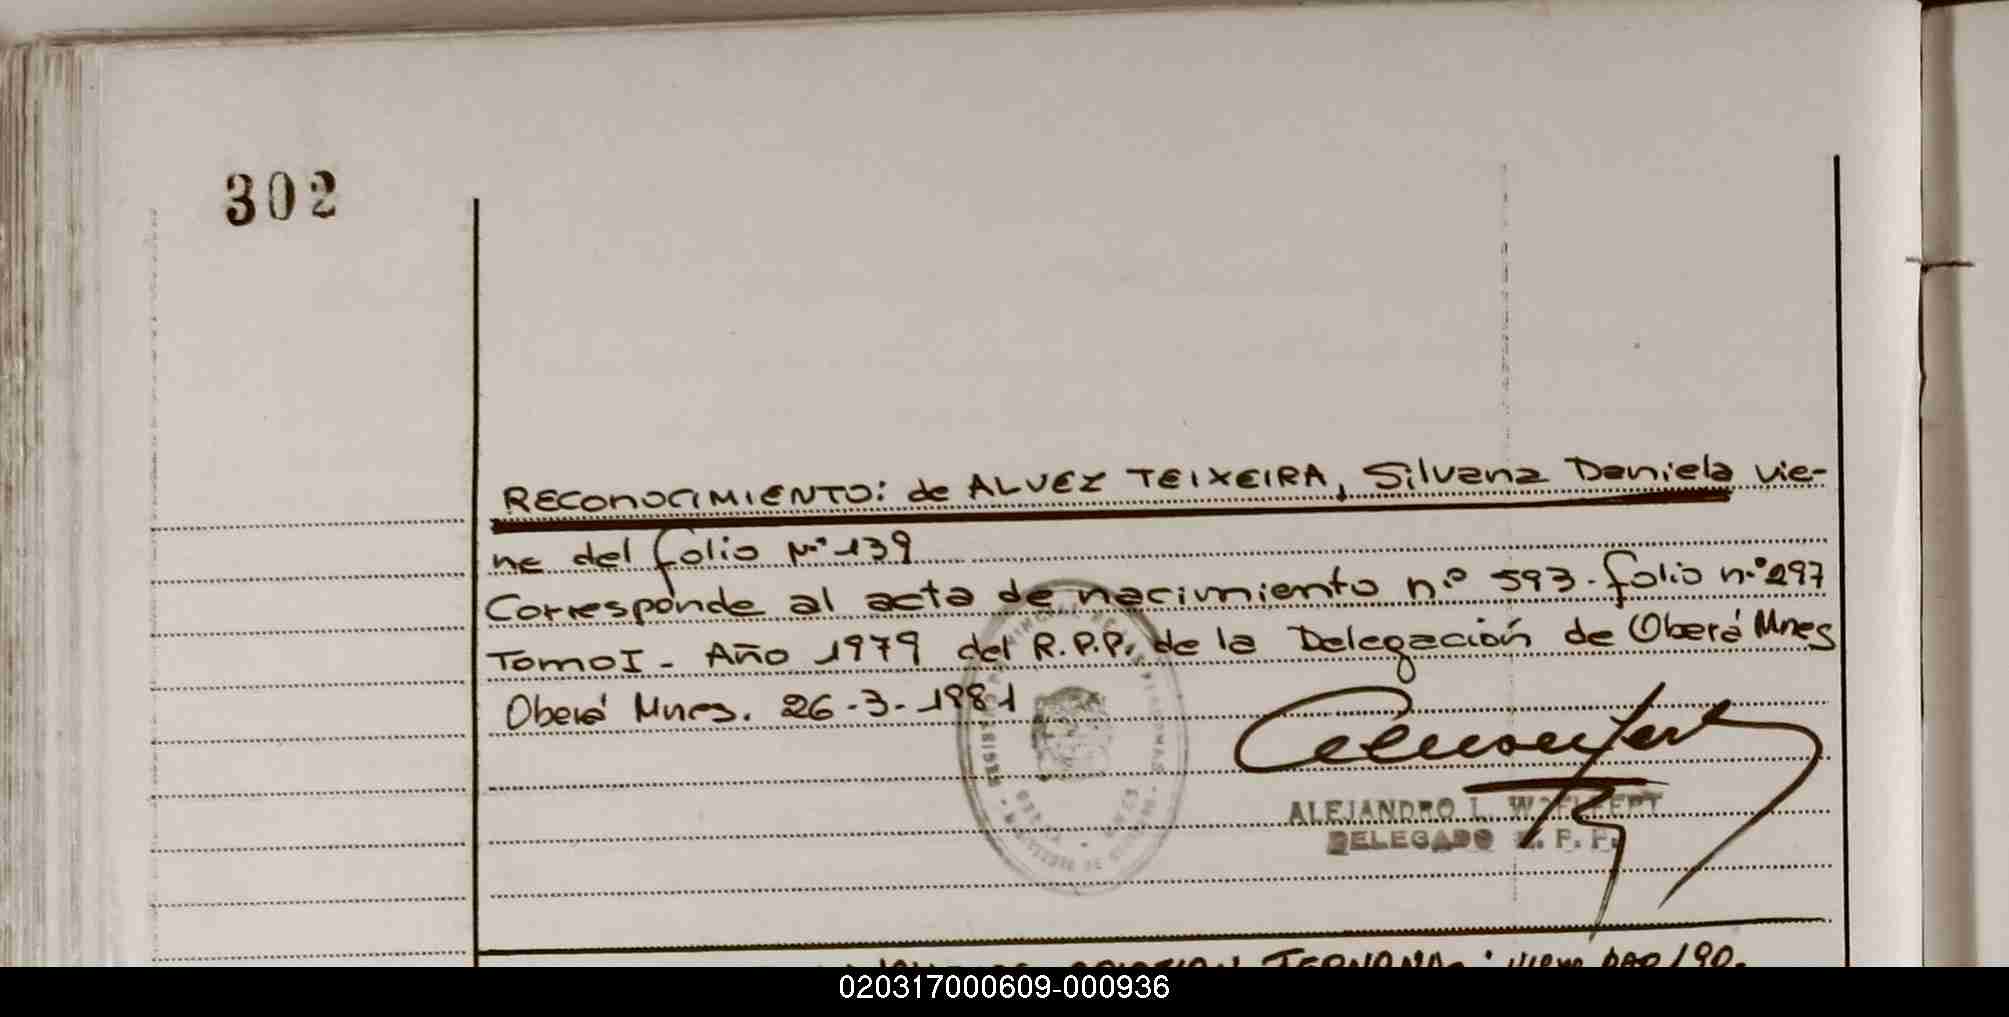 302
RECONOCIMIENTO: de ALVEZ TEIXEIRA, Silvana Daniela vie-
ne del folio Nº 139
Corresponde al acta de nacimiento n.º 593. folio n.º 297
Tomo I - Año 1979 del R.P.P. de la Delegación de Oberá Mnes
Oberá Mnes. 26-3-1981
ALEJANDRO L.
DELEGADO
020317000609-000936